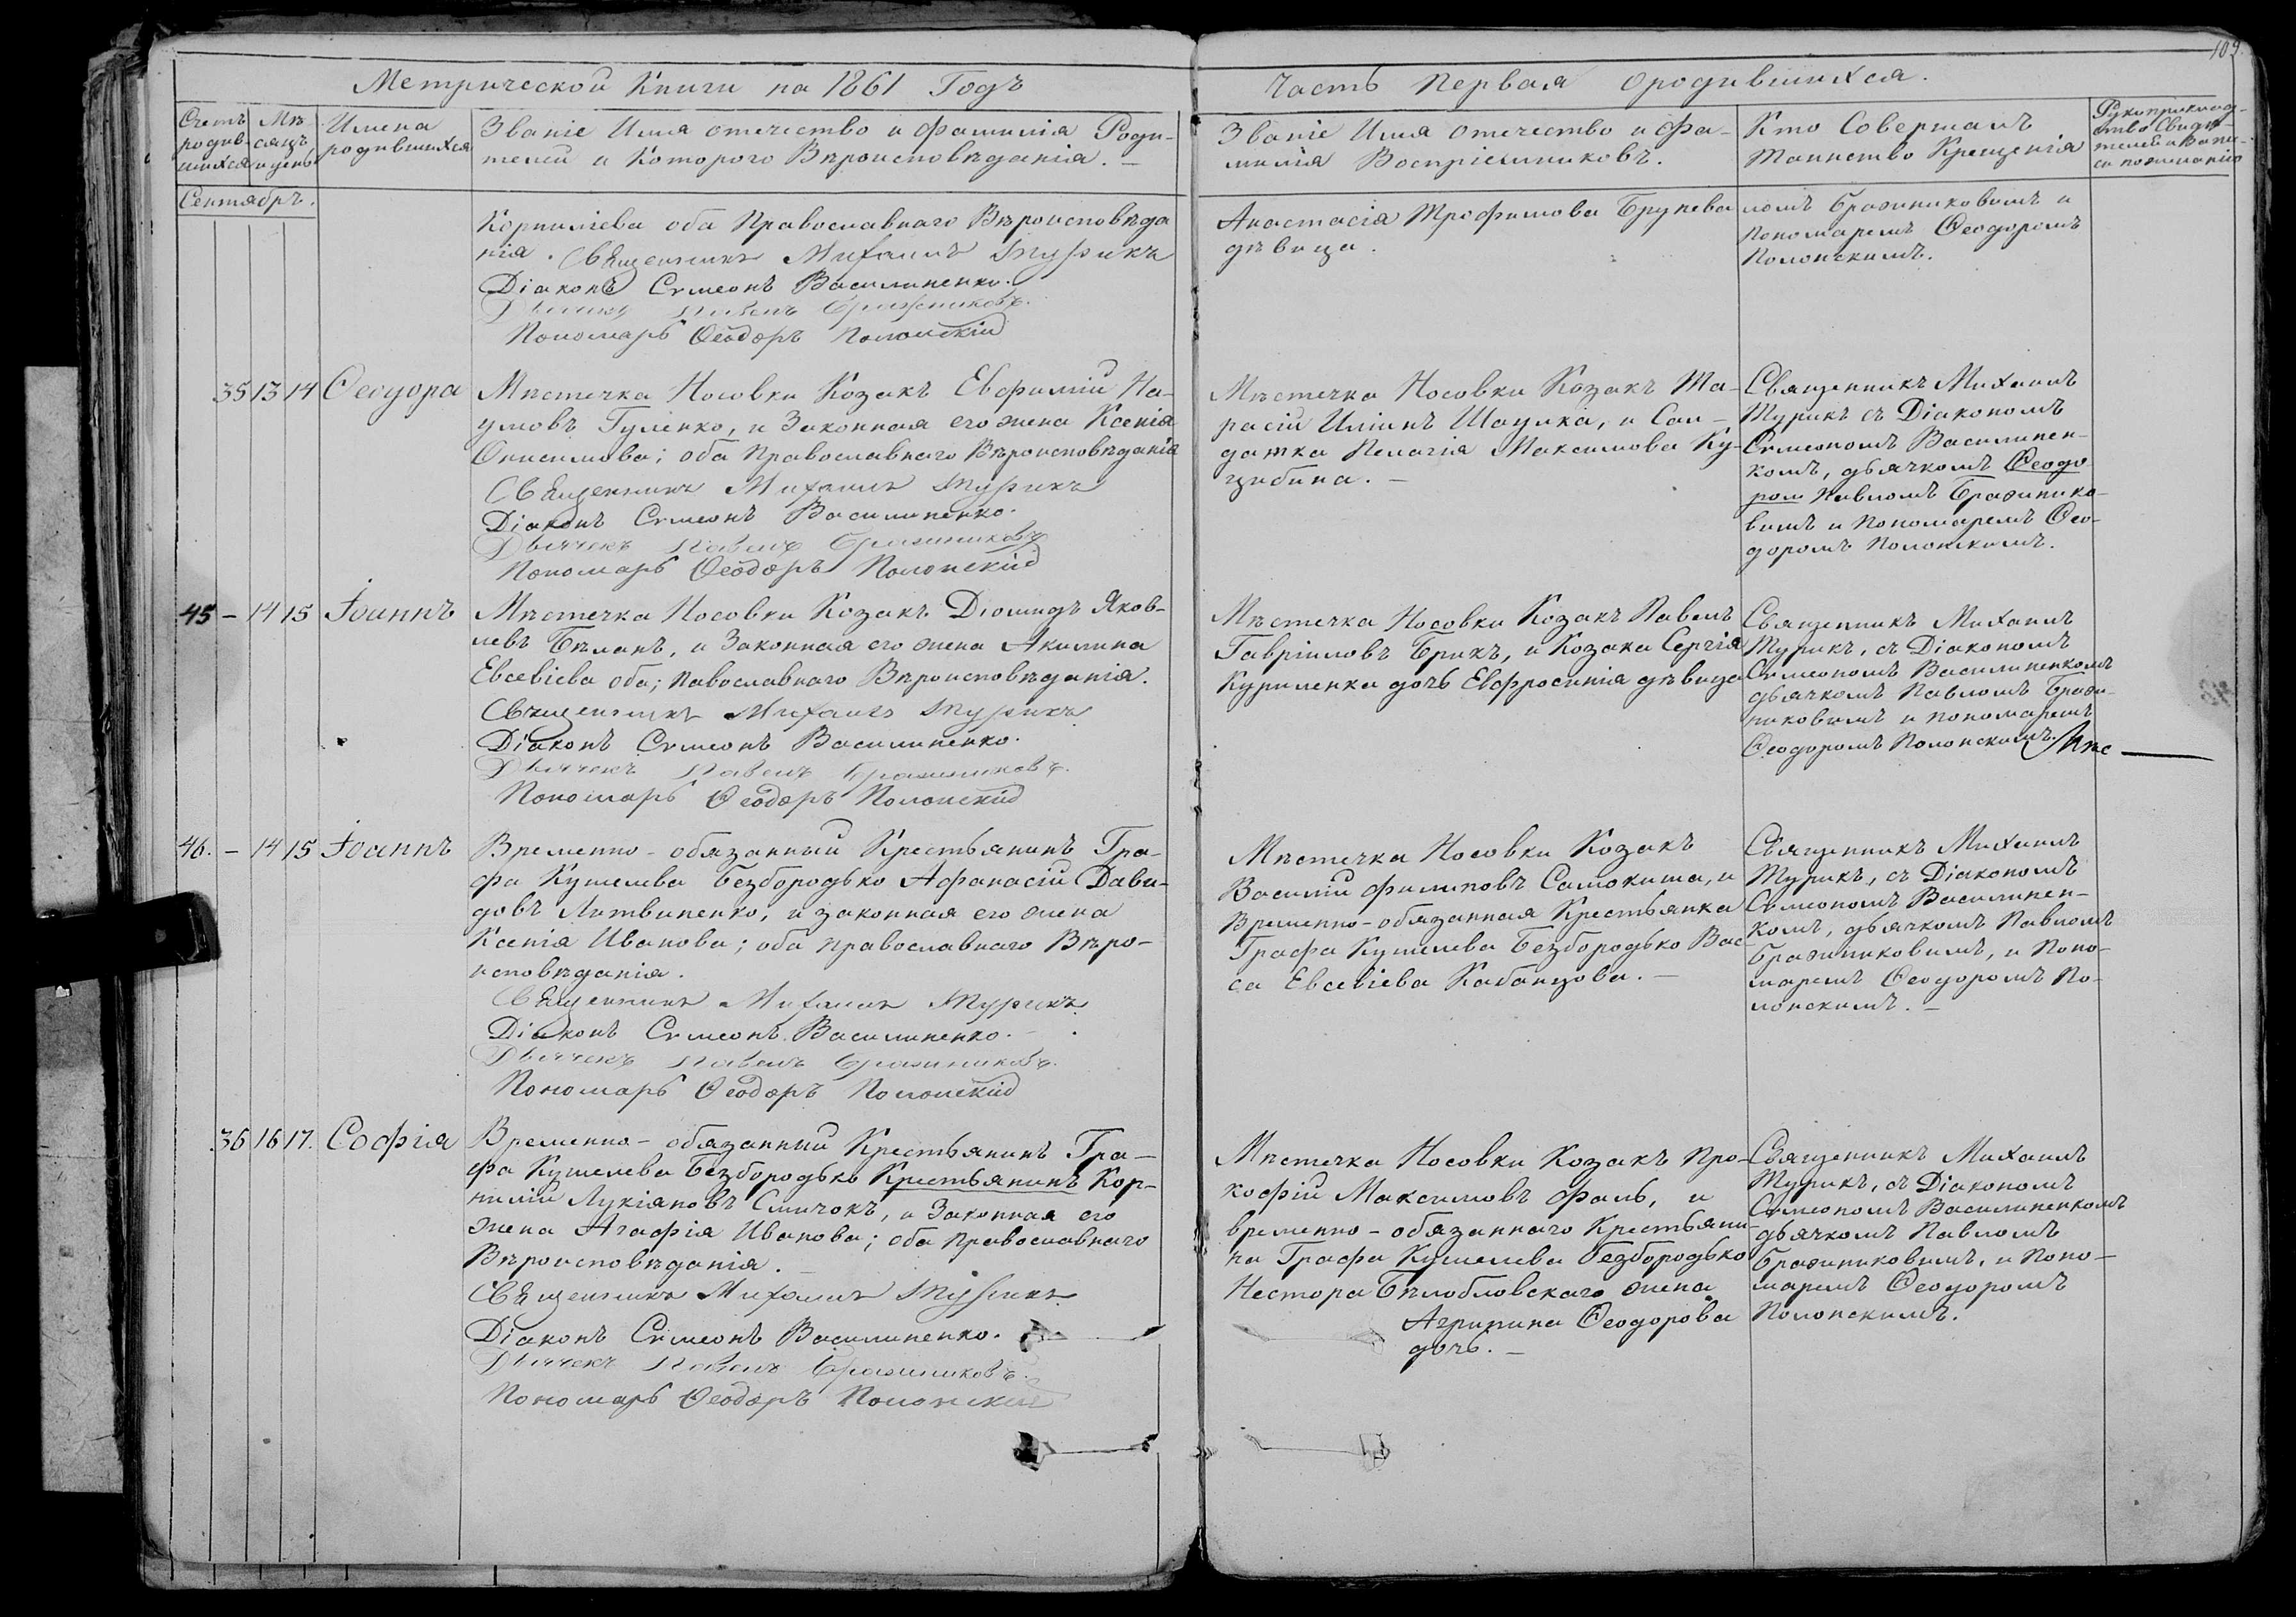 109.
Метрической Книги на 1861 Годъ
Часть Первая о родившихся.
Счетъ родив-шихся
Мѣ-сяцъ и день
Имена родившихся
Званіе Имя отечество и фамилія Роди-
телей и Которого Вѣроисповѣданія. —
Званіе Имя отечество и фа-
милія Воспріемниковъ.
Кто Совершалъ
Таинство Крещенія
Рукоприклад-
ство Свидѣ-
телей о Запи-
си по желанію
Сентябрь.
Корниліева оба Православнаго Вѣроисповѣда
нія. Священникъ Михаилъ Турикъ
Діаконъ Сѵмеонъ Василиненко.
Дьячекъ Павелъ Бражниковъ.
Пономарь Ѳеодоръ Полонскій
Анастасія Трофимова
дѣвица.
ломъ Бражниковымъ и
Пономаремъ Ѳеодоромъ
Полонскимъ.
35 13 14 Ѳеодора
Мѣстечка Носовки Козакъ Евфимій На-
умовъ Гуленко, и Законная его жена Ксенія
Онисимова; оба Православнаго Вѣроисповѣданія
Священникъ Михаилъ Турикъ
Діаконъ Сѵмеонъ Василиненко.
Дьячекъ Павелъ Бражниковъ
Пономарь Ѳеодоръ Полонскій
Мѣстечка Носовки Козакъ Та-
расій Иліинъ Шаулка, и Сол-
датка Пелагія Максимова Ку-
цибина. —
Священникъ Михаилъ
Турикъ съ Діакономъ
Сѵмеономъ Василинен-
комъ, дьячкомъ Ѳеодо-
ром Павломъ Бражнико-
вымъ и Пономаремъ Ѳео-
доромъ Полонскимъ.
45 – 14 15 Іоаннъ
Мѣстечка Носовки Козакъ Діомидъ Яков-
левъ Бѣланъ, и Законная его жена Акилина
Евсевіева оба; Павославнаго Вѣроисповѣданія.
Священникъ Михаилъ Турикъ
Діаконъ Сѵмеонъ Василиненко.
Дьячекъ Павелъ Бражниковъ.
Пономарь Ѳеодоръ Полонскій
Мѣстечка Носовки Козакъ Павелъ
Гавріиловъ Брикъ, и Козака Сергія
Куриленка дочь Евфросинія дѣвица
Священникъ Михаилъ
Турикъ, съ Діакономъ
Сѵмеономъ Василиненкомъ
дьячкомъ Павломъ Браж-
никовымъ и пономаремъ
Ѳеодоромъ Полонскимъ.
46. – 14 15 Іоаннъ
Временно-обязанный Крестьянинъ Гра-
фа Кушелева Безбородько Афанасій Дави-
довъ Литвиненко, и законная его жена
Ксенія Иванова; оба православнаго Вѣро-
исповѣданія.
Священникъ Михаилъ Турикъ
Діаконъ Сѵмеонъ Василиненко.
Дьячекъ Павелъ Бражниковъ.
Пономарь Ѳеодоръ Полонскій
Мѣстечка Носовки Козакъ
Василій Филиповъ Самокиша, и
Временно-обязанная Крестьянка
Графа Кушелева Безбородько Вас-
са Евсевіева Кабанцова. —
Священникъ Михаилъ
Турикъ, съ Діакономъ
Сѵмеономъ Василинен-
комъ, дьячкомъ Павломъ
Бражниковимъ, и Поно-
маремъ Ѳеодоромъ По-
лонскимъ. —
36 16 17. Софія
Временно-обязанный Крестьянинъ Гра-
фа Кушелева Безбородько Крестьянинъ Кор-
нилій Лукіяновъ Смичокъ, и Законная его
жена Агафія Иванова; оба Православнаго
Вѣроисповѣданія. —
Священникъ Михаилъ Турикъ
Діаконъ Сѵмеонъ Василиненко.
Дьячекъ Павелъ Бражниковъ.
Пономарь Ѳеодоръ Полонскій
Мѣстечка Носовки Козакъ Про-
кофій Максимовъ Фаль, и
временно-обязаннаго Крестьяни-
на Графа Кушелева Безбородько
Нестора Бѣлобловскаго жена
Агрипина Ѳеодорова
дочь. —
Священникъ Михаилъ
Турикъ, съ Діакономъ
Сѵмеономъ Василиненкомъ
дьячкомъ Павломъ
Бражниковимъ, и Поно-
маремъ Ѳеодоромъ
Полонскимъ.